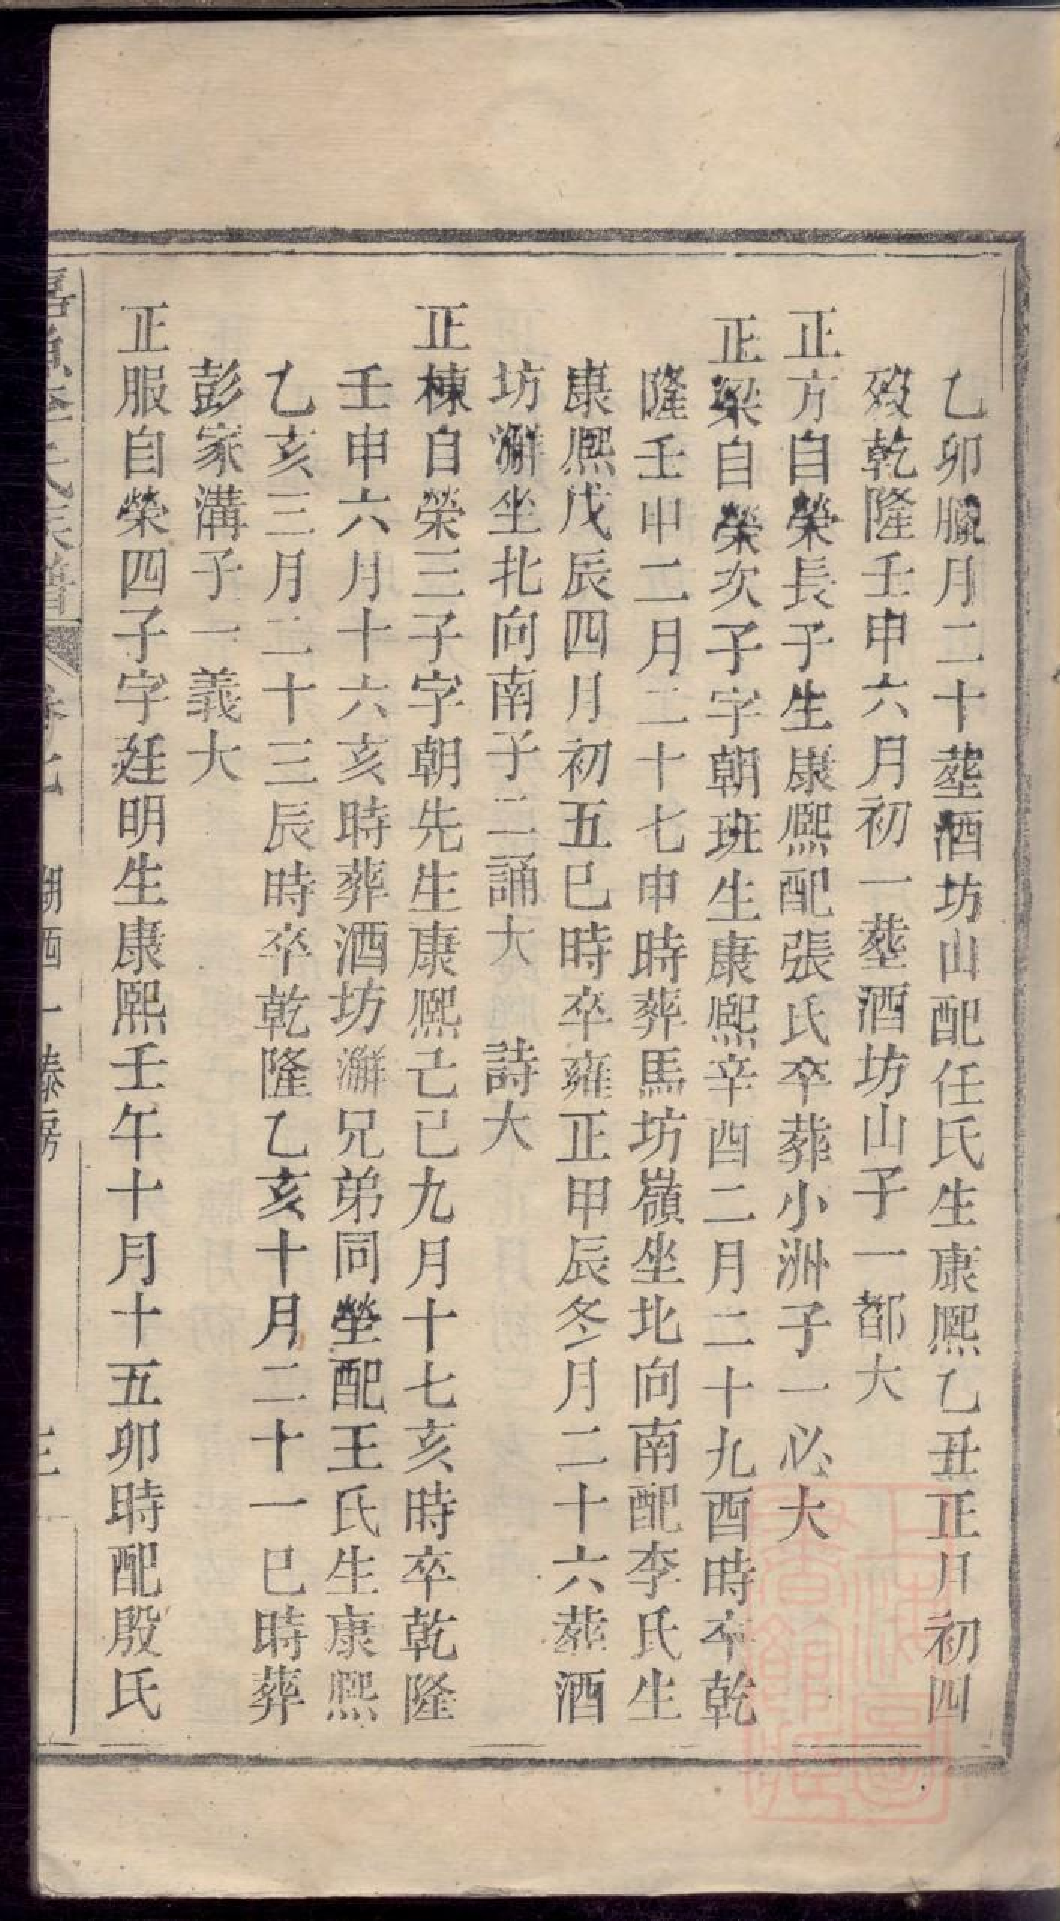 乙卯臘月二十塟酒坊山配任氏生康熙乙丑正月初四
歿乾隆壬申六月初一塟酒坊山子一都大
正方自榮長子生康熙配張氏卒葬小洲子一必大
正梁自榮次子字朝班生康熙辛酉二月二十九酉時卒乾
隆壬申二月二十七申時葬馬坊嶺坐北向南配李氏生
康熙戊辰四月初五巳時卒雍正甲辰冬月二十六葬酒
坊澥坐北向南子二誦大 詩大
正棟自榮三子字朝先生康熙己巳九月十七亥時卒乾隆
壬申六月十六亥時葬酒坊澥兄弟同塋配王氏生康熙
乙亥三月二十三辰時卒乾隆乙亥十月二十一巳時葬
彭家溝子一義大
正服自榮四子字廷明生康熙壬午十月十五卯時配殷氏
氏族譜 卷七 湖西一榛房 三